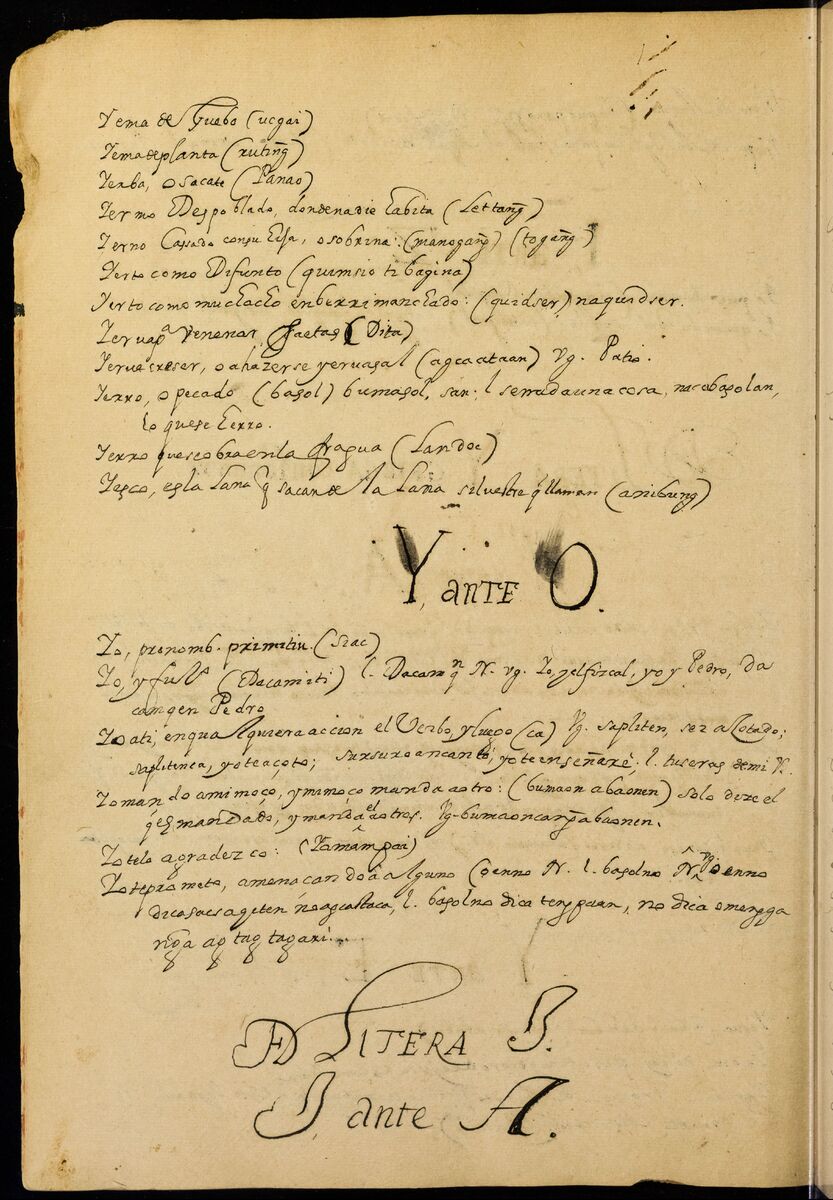 Yema de Guebo (ucgai)
Yema de planta (rutin͠g)
Yerba, o sacate (Panao)
Yermo Despoblado, donde nadie habita (Lettan͠g)
Yerno Cassado con su Hija, o sobrina: (manogan͠g) (togan͠g)
Yerto como Difunto (quimsio ti bagina)
Yerto como muchacho enberrimanchado: (quidser) naquidser.
Yerva pᵃ venenar saetas (Dita)
Yerva creser, o ahazerse yervasal (agcaataan) Vg. Patio.
Yerro, o pecado (basol) bumasol, san: l. se muda una cosa, nacabasolan,
lo que se herro.
Yerro que se obra en la fragua (Landoc)
Yesco, es la Lana q̃ sacan de la Laña silvestre q̃ llaman (anibung)
Y, ante O.
Yo, pronomb. primitiu. (Siac)
Yo, y fulᵒ (Dacamiti) l. Dacam qⁿ N. vg. Yo, y el fiscal, yo y Pedro, Da
camqen Pedro
Yo ati, en qualquiera accion el Verbo, y luego (ca) Vg. sapliten, ser açotado;
saplitenca, yo te açoto; sursuroancanto, yo te enseñarè; l. tu seras de mi &.
Yo mando a mi moço, y mi moço manda a otro: (bumaon abaonen) solo dize el
q̃ es mandado, y manda el a otros. Vg. bumaoncan͠g abaonen.
Yo te lo agradezco: (Yamám pai)
Yo te prometo, amenaçando à alguno (oenno N. l. basolno N. vg. oenno
dica sacsagiten no agcastaca, l. basolno dica ten͠gpaan, no dica omen͠gga